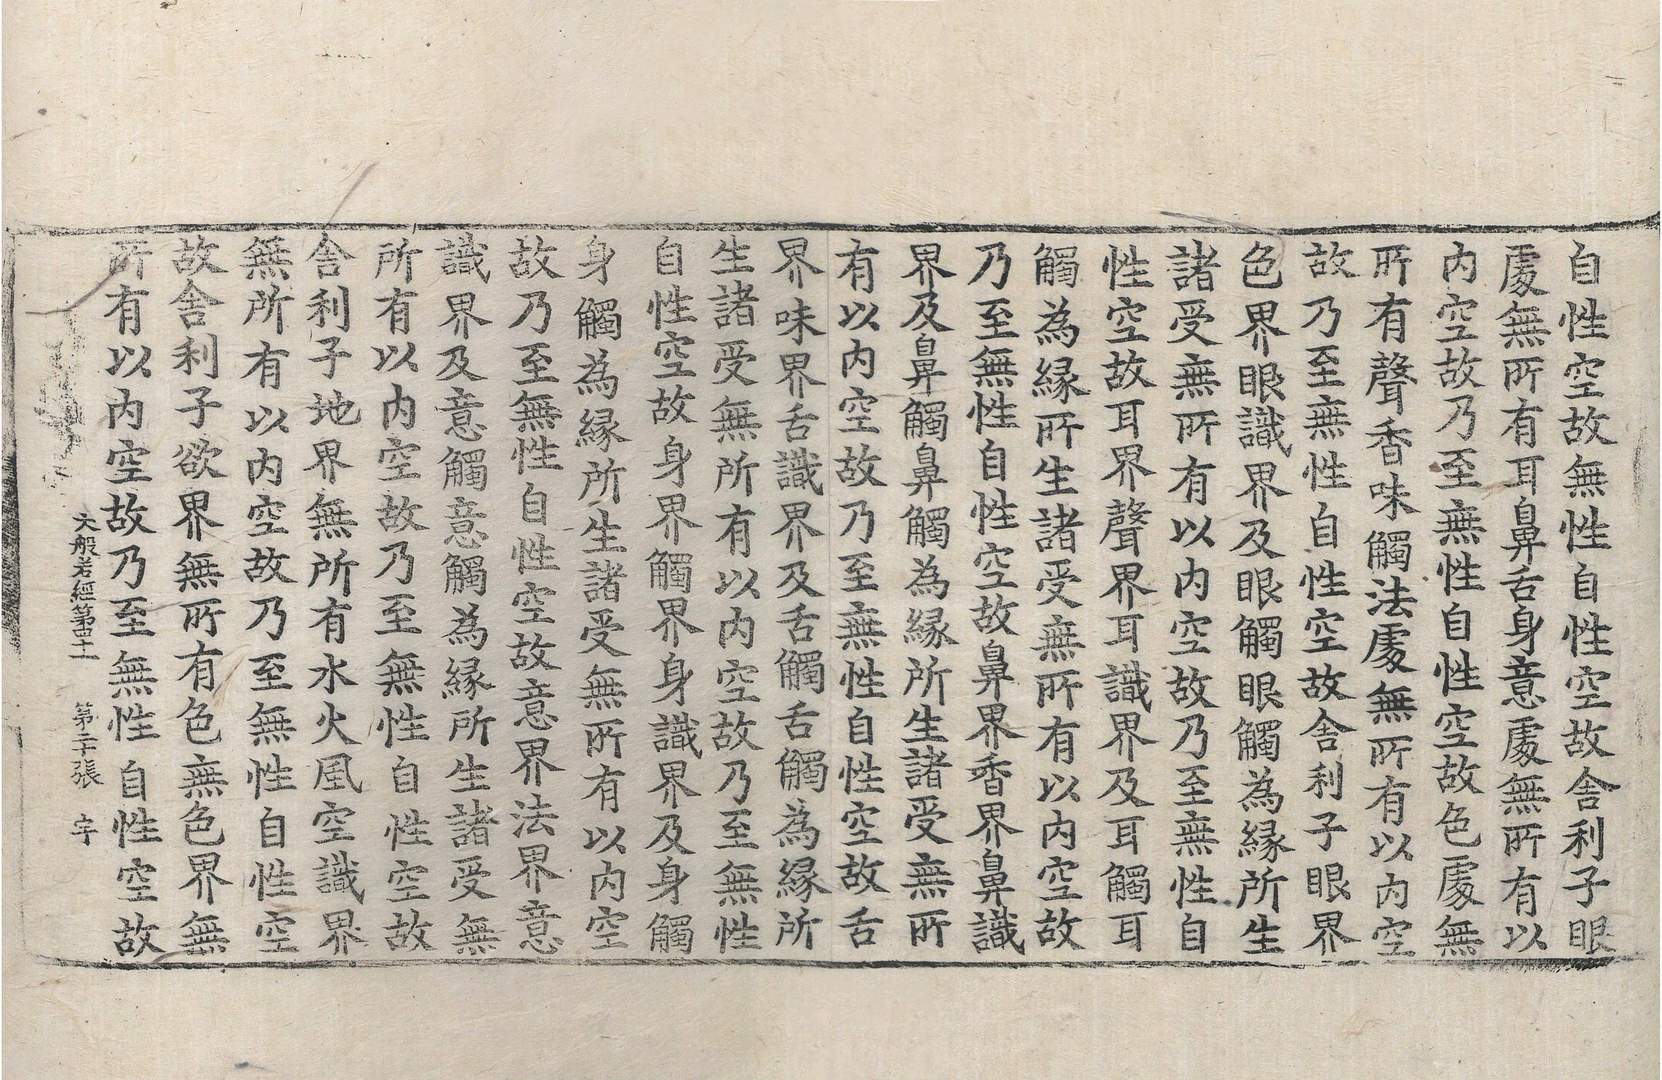 自性空故無性自性空故舍利子眼
處無所有耳鼻舌身意處無所有以
内空故乃至無性自性空故色處無
所有聲香味觸法處無所有以内空
故乃至無性自性空故舍利子眼界
色界眼識界及眼觸眼觸為縁所生
諸受無所有以内空故乃至無性自
性空故耳界聲界耳識界及耳觸耳
觸為縁所生諸受無所有以内空故
乃至無性自性空故鼻界香界鼻識
界及鼻觸鼻觸為縁所生諸受無所
有以内空故乃至無性自性空故舌
界味界舌識界及舌觸舌觸為縁所
生諸受無所有以内空故乃至無性
自性空故身界觸界身識界及身觸
身觸為縁所生諸受無所有以内空
故乃至無性自性空故意界法界意
識界及意觸意觸為縁所生諸受無
所有以内空故乃至無性自性空故
舍利子地界無所有水火風空識界
無所有以内空故乃至無性自性空
故舍利子欲界無所有色無色界無
所有以内空故乃至無性自性空故
大般若經第四十一 第二十張 宇